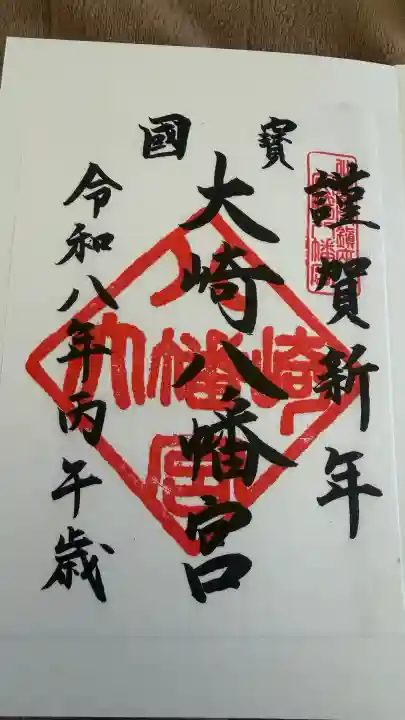 謹賀新年
國寳
大崎八幡宮
令和八年丙午歳
大崎八幡宮